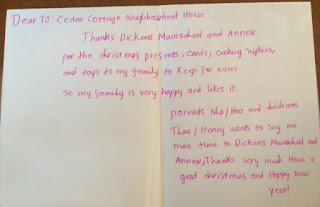 Dear To: Cedar Cottage Neighbourhood House
Thanks Dickens Mainschool and Annex
for the christmas presents, cards, cooking supplies,
and toys to my family to keep for ever
so my family is very happy and likes it.
parents Nhu/Hao and
Thao/Henry wants to say one
more time to Dickens Mainschool and
Annexe, Thanks very much Have a
good christmas and Happy New
year!